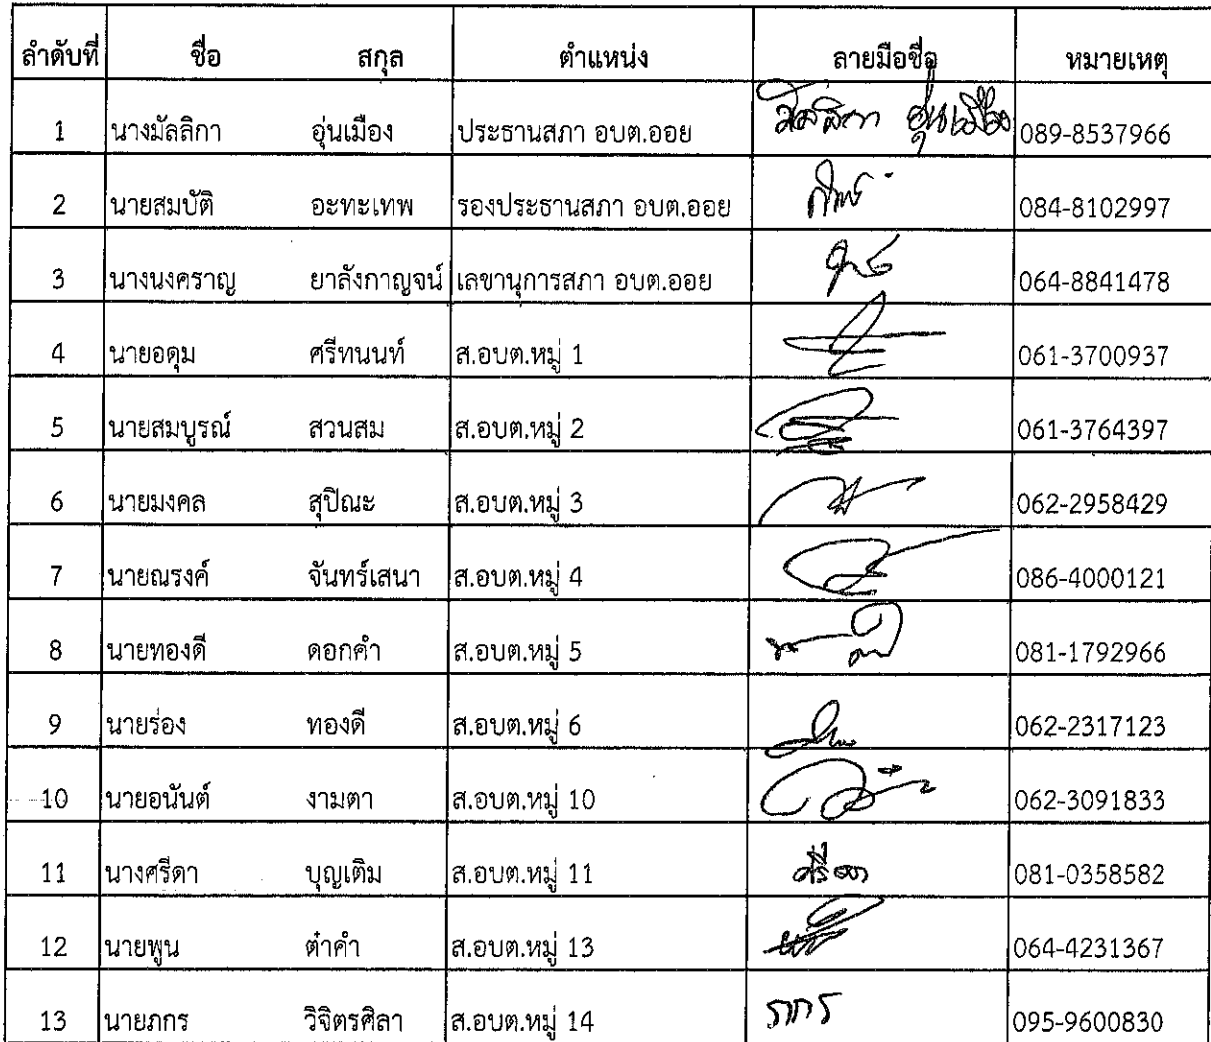 ลำดับที่ ชื่อ สกุล ตำแหน่ง ลายมือชื่อ หมายเหตุ
1 นางมัลลิกา อุ่นเมือง ประธานสภา อบต.ออย มัลลิกา อุ่นเมือง 089-8537966
2 นายสมบัติ อะทะเทพ รองประธานสภา อบต.ออย 084-8102997
3 นางนงคราญ ยาลังกาญจน์ เลขานุการสภา อบต.ออย 064-8841478
4 นายอดุม ศรีทนนท์ ส.อบต.หมู่ 1 061-3700937
5 นายสมบูรณ์ สวนสม ส.อบต.หมู่ 2 061-3764397
6 นายมงคล สุปิณะ ส.อบต.หมู่ 3 062-2958429
7 นายณรงค์ จันทร์เสนา ส.อบต.หมู่ 4 086-4000121
8 นายทองดี ดอกคำ ส.อบต.หมู่ 5 081-1792966
9 นายร่อง ทองดี ส.อบต.หมู่ 6 062-2317123
10 นายอนันต์ งามตา ส.อบต.หมู่ 10 062-3091833
11 นางศรีดา บุญเติม ส.อบต.หมู่ 11 ศรีดา 081-0358582
12 นายพูน ต๋าคำ ส.อบต.หมู่ 13 064-4231367
13 นายภกร วิจิตรศิลา ส.อบต.หมู่ 14 ภกร 095-9600830